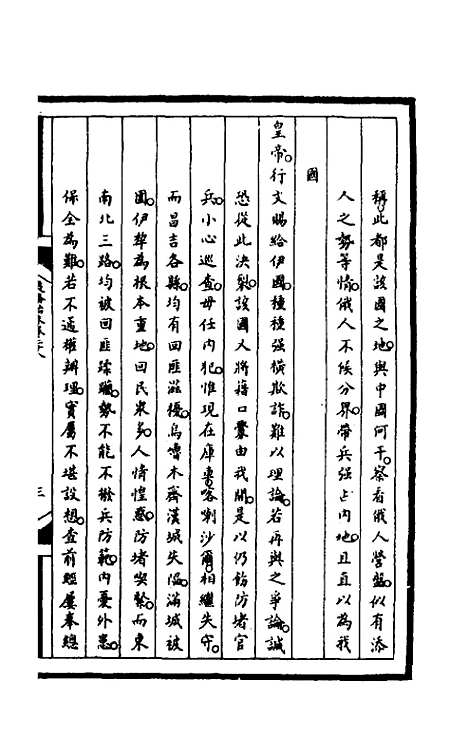 稱此都是該國之地與中國何干察看俄人營盤似有添
人之勢等情俄人不候分界帶兵强占內地且直以為我
國
皇帝行文賜給伊國種種强橫欺詐難以理論若再與之爭論誠
恐從此決裂該國又將藉口釁由我開是以仍飭防堵官
兵小心巡查毋任內犯惟現在庫車喀喇沙爾相繼失守
而昌吉各縣均有回匪滋擾烏嚕木齊漢城失陷滿城被
圍伊犂為根本重地回民衆多人情惶惑防堵喫緊而東
南北三路均被回匪蹂躪勢不能不撤兵防範內憂外患
保全為難若不通權辦理實屬不堪設想查前經屢奉總
三